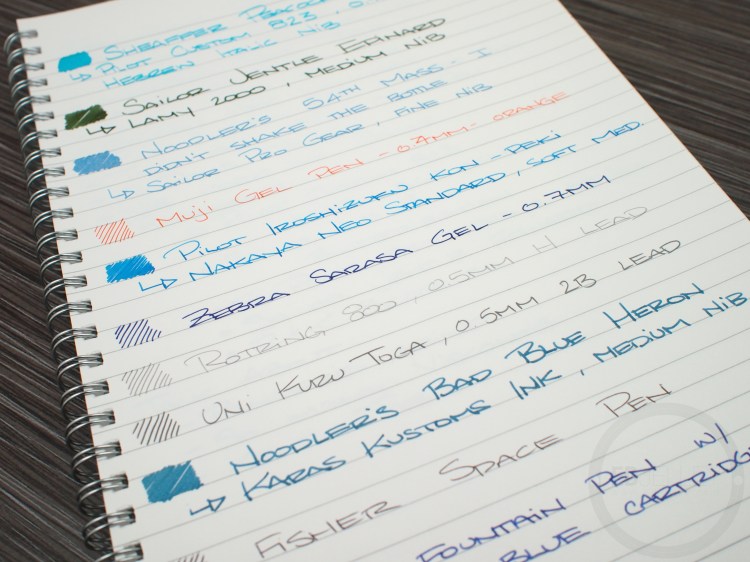 Sheaffer Peacock
↳ Pilot Custom 823,
Hebren Italic Nib
Sailor Jentle Epinard
↳ Lamy 2000, Medium Nib
Noodler's 54th Mass - I
Didn't Shake the Bottle
↳ Sailor Pro Gear, Fine Nib
Muji Gel Pen - 0.4mm - Orange
Pilot Iroshizuku Kon-Peki
↳ Nakaya Neo Standard, Soft Med.
Zebra Sarasa Gel - 0.7mm
Rotring 800, 0.5mm H Lead
Uni Kuru Toga, 0.5mm 2B Lead
Noodler's Bad Blue Heron
↳ Karas Kustoms Ink, Medium Nib
Fisher Space Pen
Fountain Pen w/
Blue Cartridge